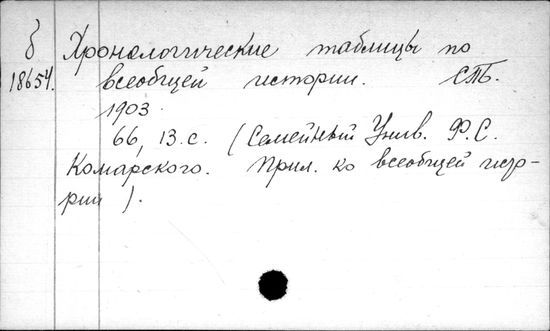 б Хронологические таблицы по
18654. всеобщей истории. СПб.
1903.
66, 13 с. (Семейный Унив. Ф.С.
Комарского. Прил. ко всеобщей исто-
рии).